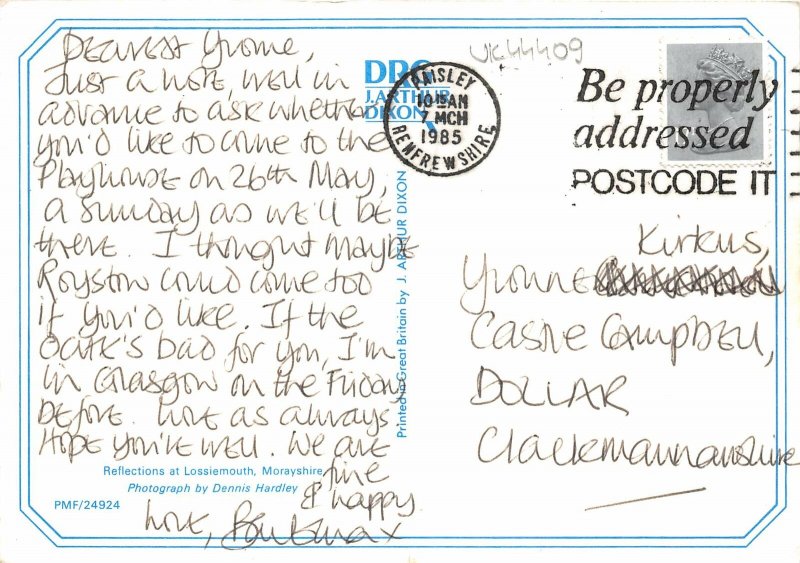 Dearest Yvonne,
Just a note, well in
advance to ask whether
you'd like to come to the
Playhouse on 26th May,
a Sunday as we'll be
there. I thought maybe
Royston could come too
if you'd like. If the
date's bad for you, I'm
in Glasgow on the Friday
before. Love as always
Hope you're well. We are
fine
& happy
Love,
Reflections at Lossiemouth, Morayshire
Photograph by Dennis Hardley
PMF/24924
DRG
J. ARTHUR
DIXON
Printed in Great Britain by J. ARTHUR DIXON
UK44409
PAISLEY
10 15 AM
7 MCH
1985
RENFREWSHIRE
Be properly
addressed
POSTCODE IT
Kirkus,
Yvonne
Castle Campbell,
DOLLAR
Clackmannanshire